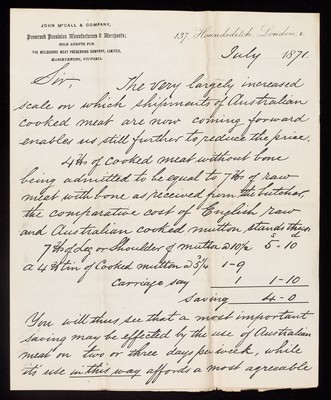 JOHN McCALL & COMPANY,
Preserved Provision Manufacturers & Merchants;
SOLE AGENTS FOR
THE MELBOURNE MEAT PRESERVING COMPANY, LIMITED,
MARIBYRNONG, VICTORIA
137, Houndsditch, London, E.
July 1871.
Sir, The very largely increased
scale on which shipments of Australian
cooked meat are now coming forward
enables us still further to reduce the price.
4 lbs of cooked meat without bone
being admitted to be equal to 7 lbs of raw
meat with bone as received from the butcher,
the comparative cost of English raw
and Australian cooked mutton stands thus:
7 lbs of Leg or Shoulder of mutton @ 10d 5s-10d
A 4 lb tin of Cooked mutton @ 5¼ 1-9
Carriage say 1 1-10
Saving 4-0
You will thus see that a most important
saving may be effected by the use of Australian
meat on two or three days per week, while
its use in this way affords a most agreeable